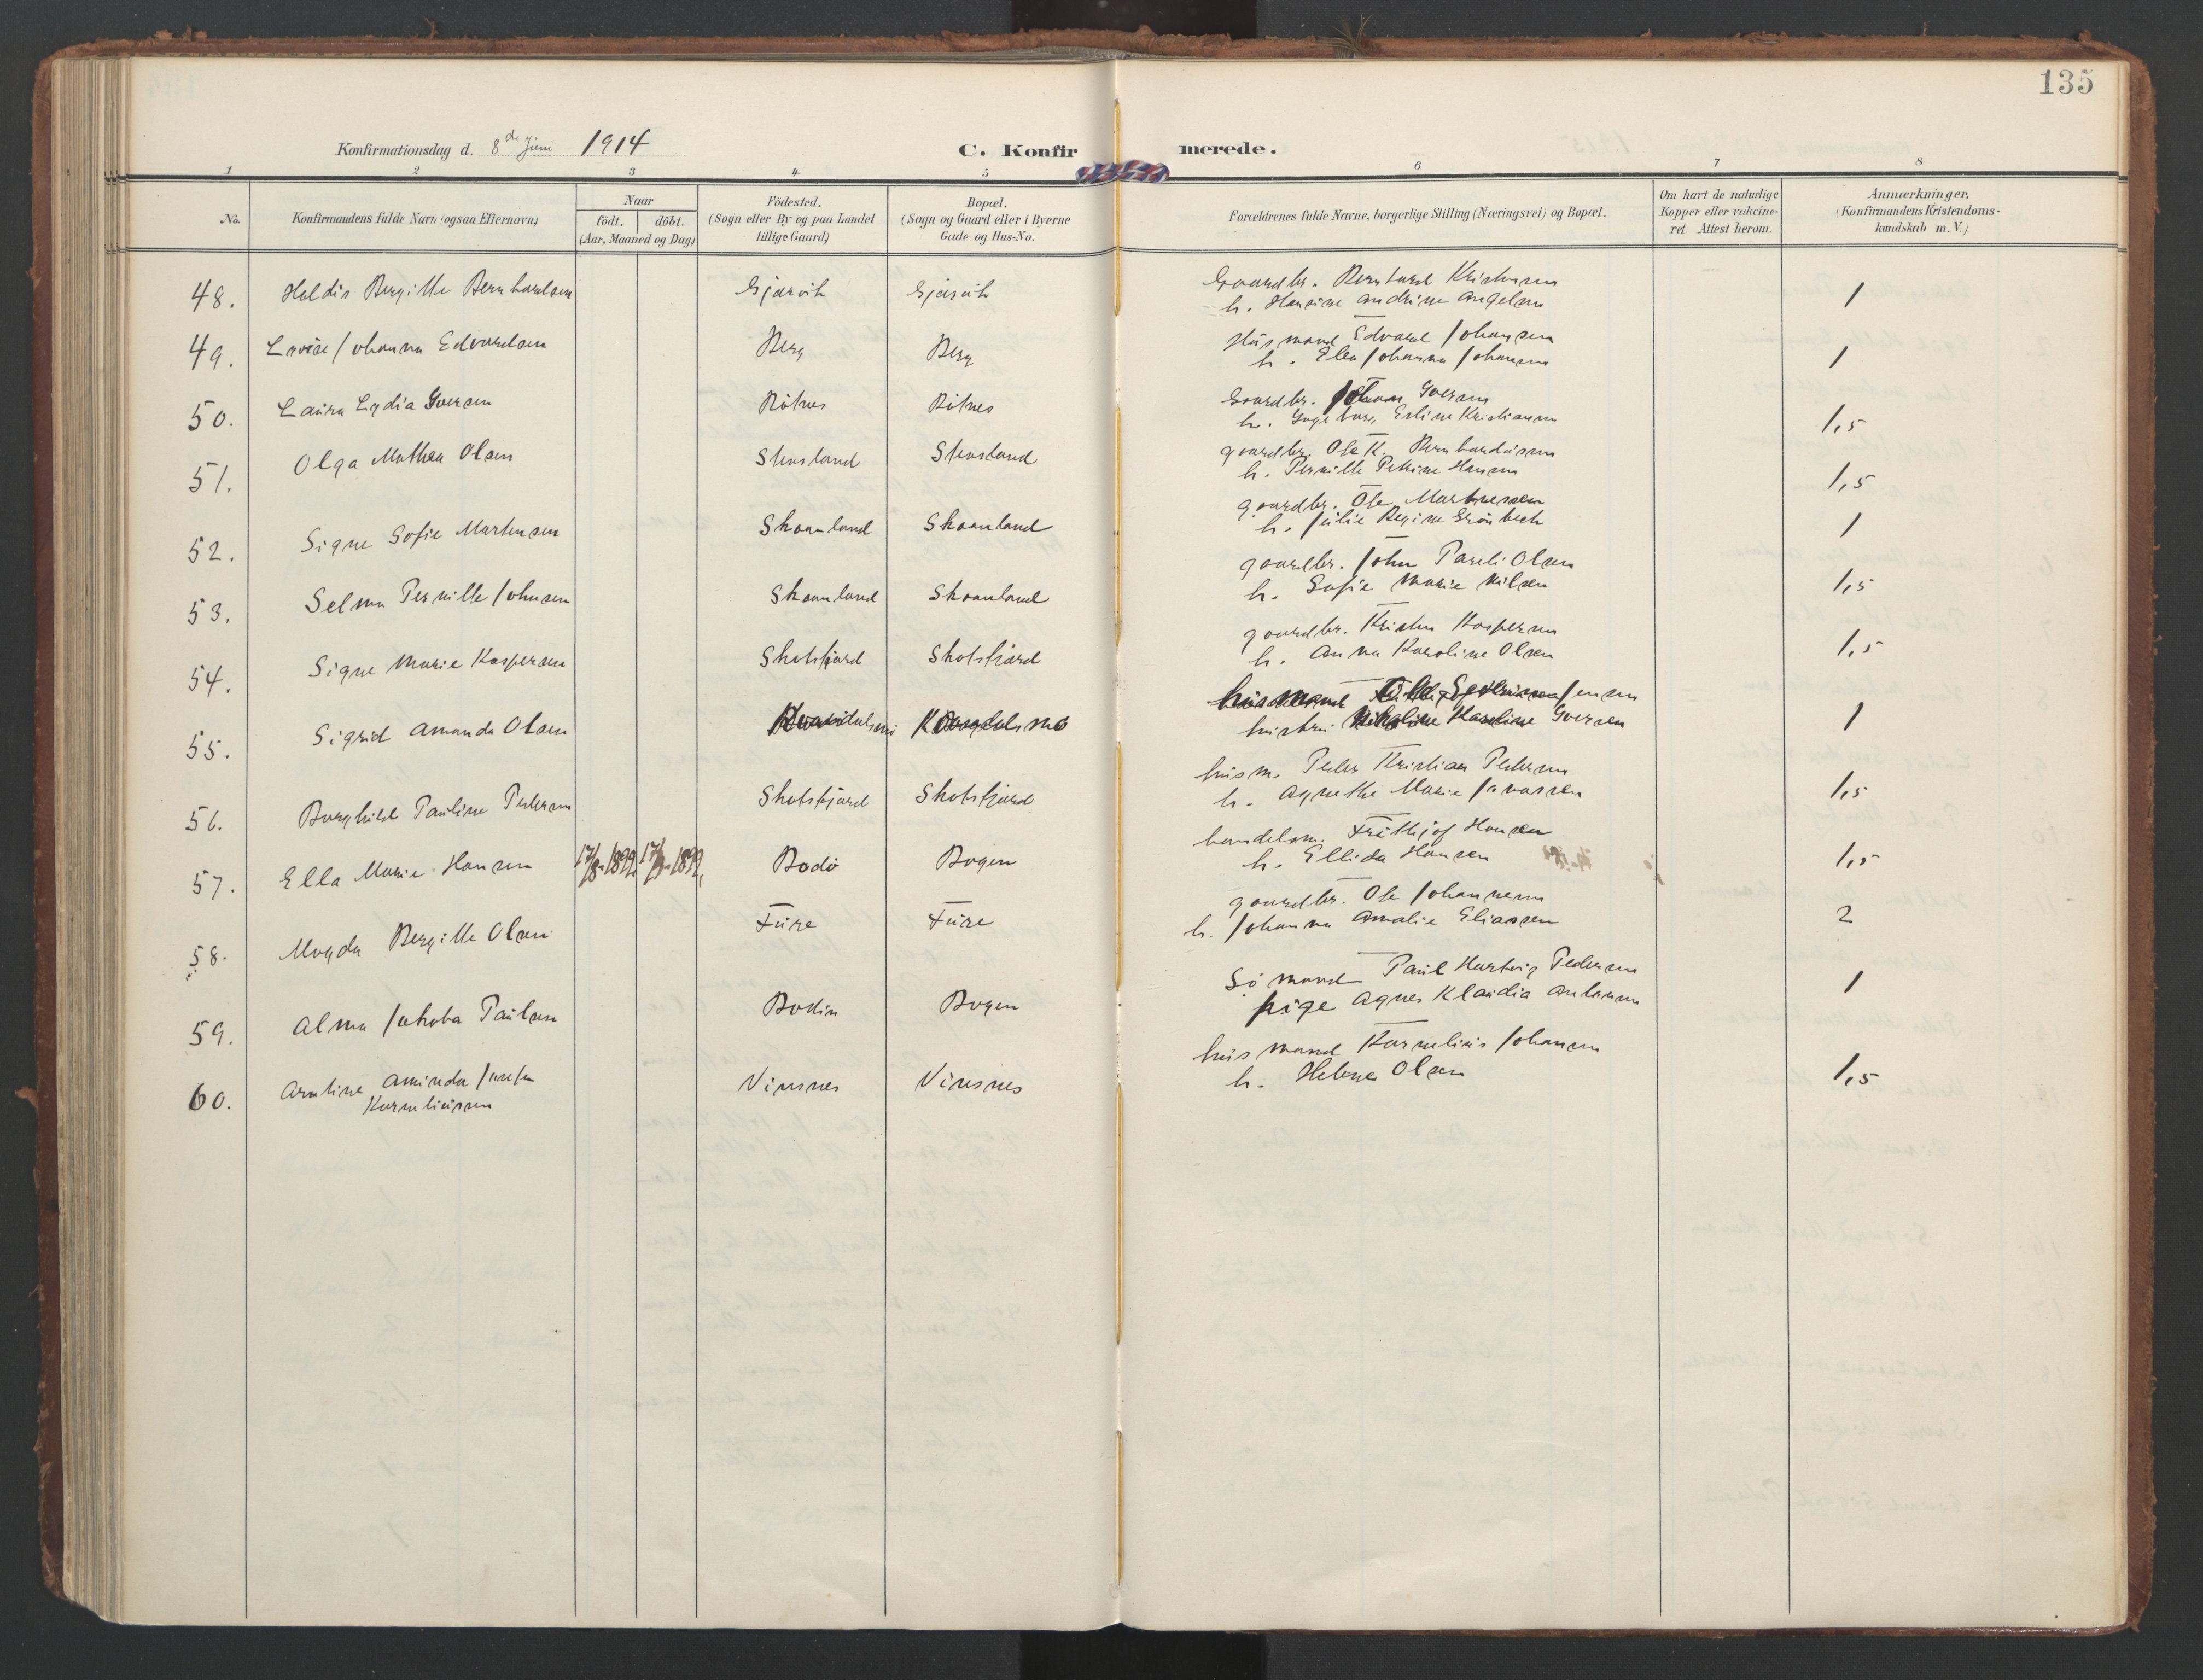 135
Konfirmationsdag d. 8de Juni 1914
C. Konfirmerede.
1 2 3 4 5 6 7 8
No.
Konfirmandens fulde Navn (ogsaa Efternavn)
Naar
födt. döbt.
(Aar, Maaned og Dag)
Födested.
(Sogn eller By og paa Landet
tillige Gaard)
Bopæl.
(Sogn og Gaard eller i Byerne
Gade og Hus-No.
Forældrenes fulde Navne, borgerlige Stilling (Næringsvei) og Bopæl.
Om havt de naturlige
Kopper eller vakcine-
ret. Attest herom.
Anmærkninger.
(Konfirmandens Kristendoms-
kundskab m. V.)
48. Haldis Bergitte Bernhardsen Gjærvik Gjærvik Gaardbr. Bernhard Kristensen 1
h. Hansine Andrine Angelsen
49. Lovise Johanna Edvardsen Berg Berg Husmand Edvard Johansen 1
h. Elen Johanna Johansen
50. Laura Lydia Iversen Bötnes Bötnes Gaardbr. Johan Iversen 1,5
h. Ingeborg Erline Kristiansen
51. Olga Mathea Olsen Stensland Stensland gaardbr. Ole K. Bernhardusen 1,5
h. Pernille Petrine Hansen
52. Signe Sofie Martensen Skaanland Skaanland gaardbr. Ole Martinesen 1
h. Julie Regine Grönbech
53. Selma Pernille Johnsen Skaanland Skaanland gaardbr. John Pareli Olsen 1,5
h. Sofie Marie Nilsen
54. Signe Marie Kaspersen Skotsfjord Skotsfjord gaardbr. Kristen Kaspersen 1,5
h. Anna Karoline Olsen
55. Sigrid Amanda Olsen husmand Jensen 1
hustru Nikoline Karoline Iversen
56. Borghild Pauline Pedersen Skotsfjord Skotsfjord husm. Peder Kristian Pedersen 1,5
h. Agnethe Marie
57. Ella Marie Hansen 17/8-1899 1899 Bodö Bogen handelsm. Frithjof Hansen 1,5
h. Ellida Hansen
58. Magda Bergitte Olsen Fure Fure gaardbr. Ole Johannesen 2
h. Johanna Amalie Eliassen
59. Alma Jakoba Paulsen Bodin Bogen Sömand Paul Hartvig Pedersen 1
pige Agnes Klaudia Antonsen
60. Arntine Aminda Vinsnes Vinsnes husmand Kornelius Johansen 1,5
Korneliussen h. Helene Olsen